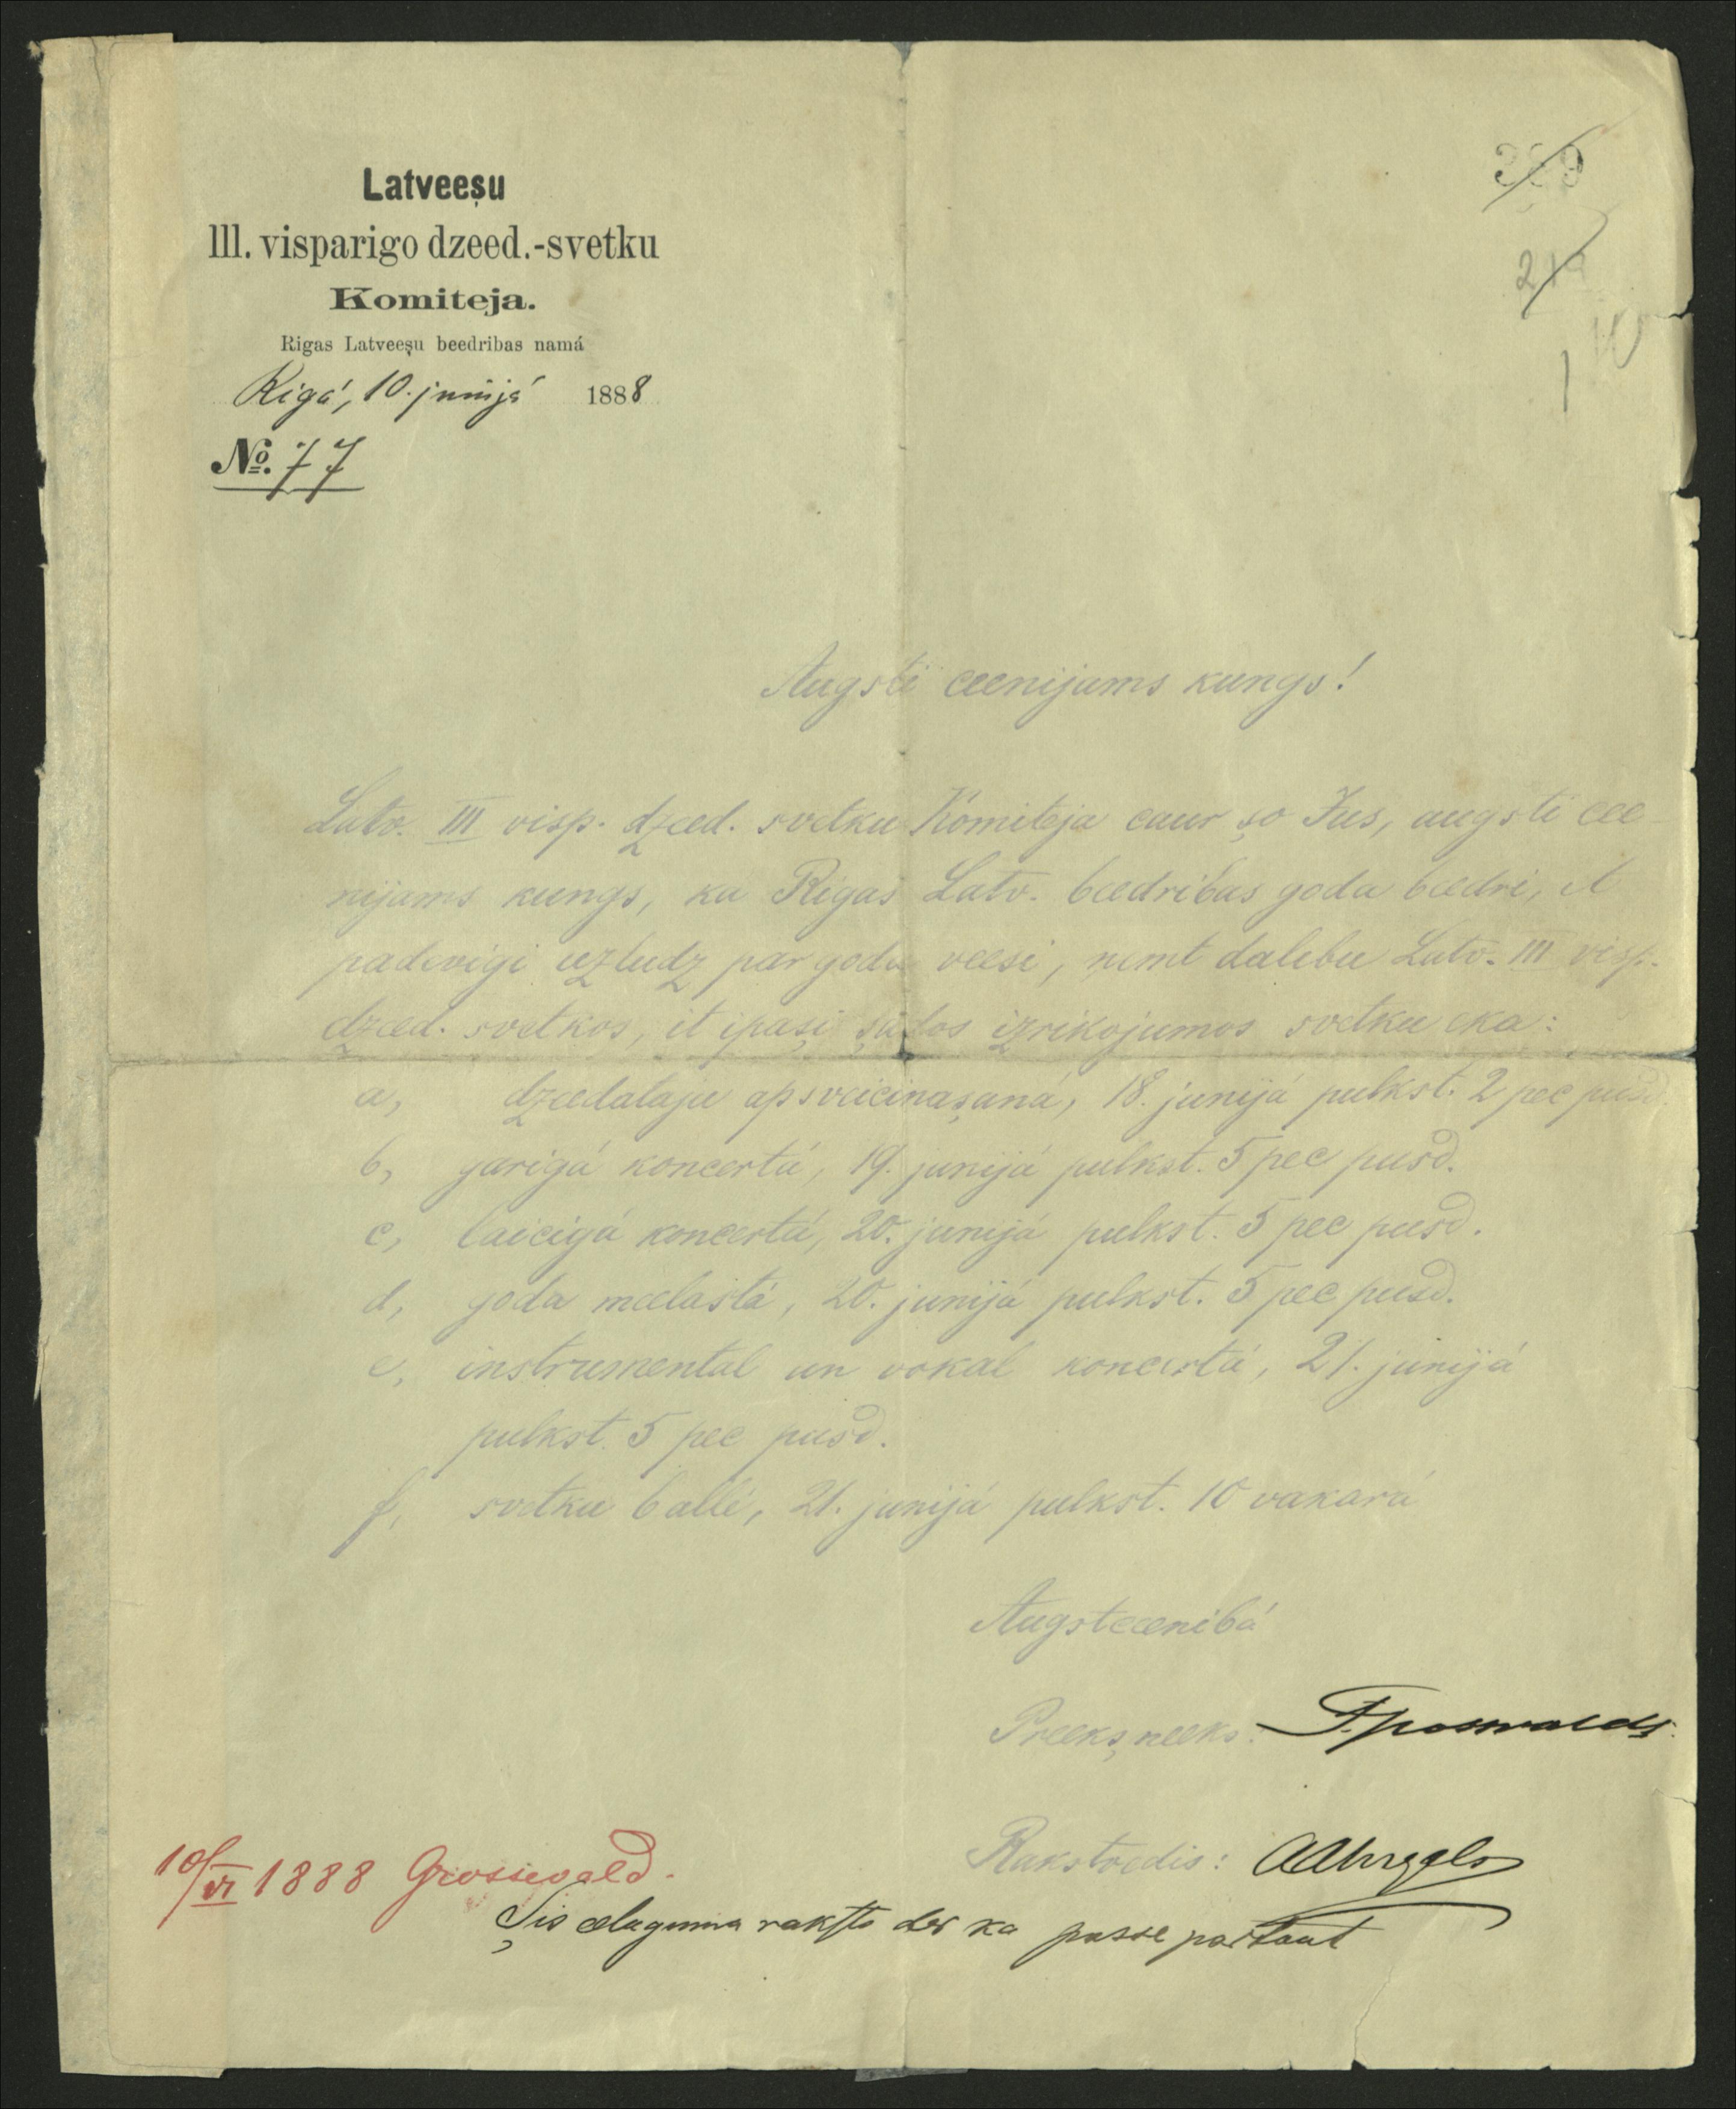 Latveeşu
III. visparigo dzeed.-svetku
Komiteja.
Rigas Latveeşu beedribas namá
Rigá, 10. junijá 1888
№. 77
Augsti ceenijams kungs!
Latv. III visp. dzeed. svetku Komiteja caur şo Jus, augsti cee-
nijams kungs, ka Rigas Latv. beedribas goda beedri, it
padevigi uzludz par goda veesi, nemt dalibu Latv. III visp.
dzeed. svetkos, it ipaşi şados izrikojumos svetku eka:
a, dzeedataju apsveicinaşaná, 18. junijá pulkst. 2 pec pusd.
b, garigá koncertá, 19. junijá pulkst. 5 pec pusd.
c, laicigá koncertá, 20. junijá pulkst. 5 pec pusd.
d, goda meelastá, 20. junijá pulkst. 5 pec pusd.
e, instrumental un vokal koncertá, 21. junijá
pulkst. 5 pec pusd.
f, svetku ballé, 21. junijá pulkst. 10 vakará
Augstceenibá
Preekşneeks:
Rakstvedis:
10/VI 1888 Grosswald.
Şis eelaguma raksts der ka passe partout